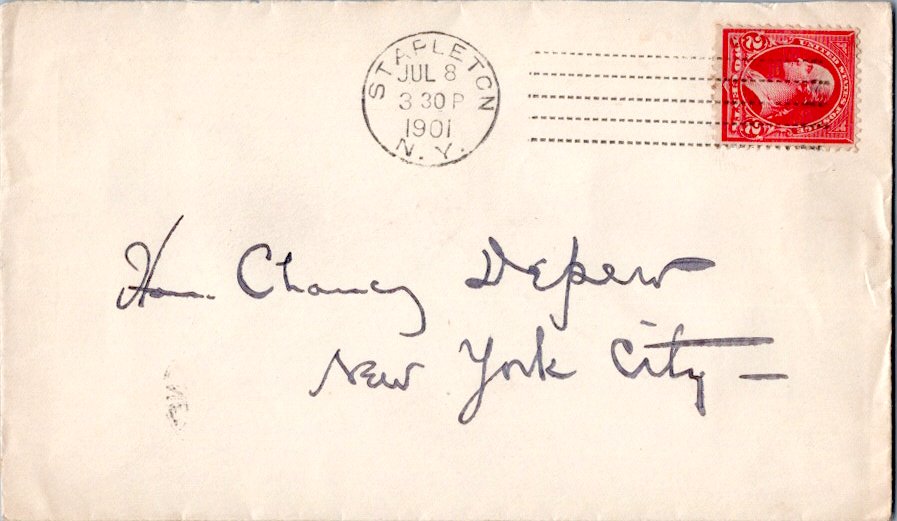 STAPLETON
JUL 8
3 30 P
1901
N.Y.
UNITED STATES POSTAGE
2 2
Hon. Chancey Depew
New York City —